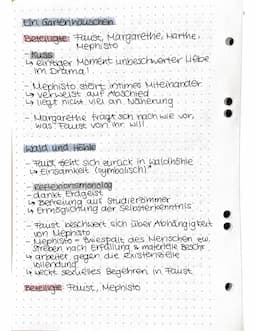 Ein Gartenhäuschen
Beteiligte: Faust, Margarethe, Marthe,
Mephisto
Kuss
↳ einziger Moment unbeschwerter Liebe
im Drama!
- Mephisto stört intimes Miteinander
↳ verweist auf Abschied
↳ liegt nicht viel an Näherung
- Margarethe fragt sich nach wie vor,
was Faust von ihr will
Wald und Höhle
- Faust zieht sich zurück in Waldhöhle
↳ Einsamkeit (symbolisch)
Reflexionsmonolog
- dankt Erdgeist
↳ Befreiung aus Studierzimmer
↳ Ermöglichung der Selbsterkenntnis
- Faust beschwert sich über Abhängigkeit
von Mephisto
- Mephisto = Zwiespalt des Menschen zw.
Streben nach Erfüllung & materielle
↳ arbeitet gegen die existenzielle
Vollendung
↳ weckt sexuelles Begehren in Faust
Beteiligte: Faust, Mephisto